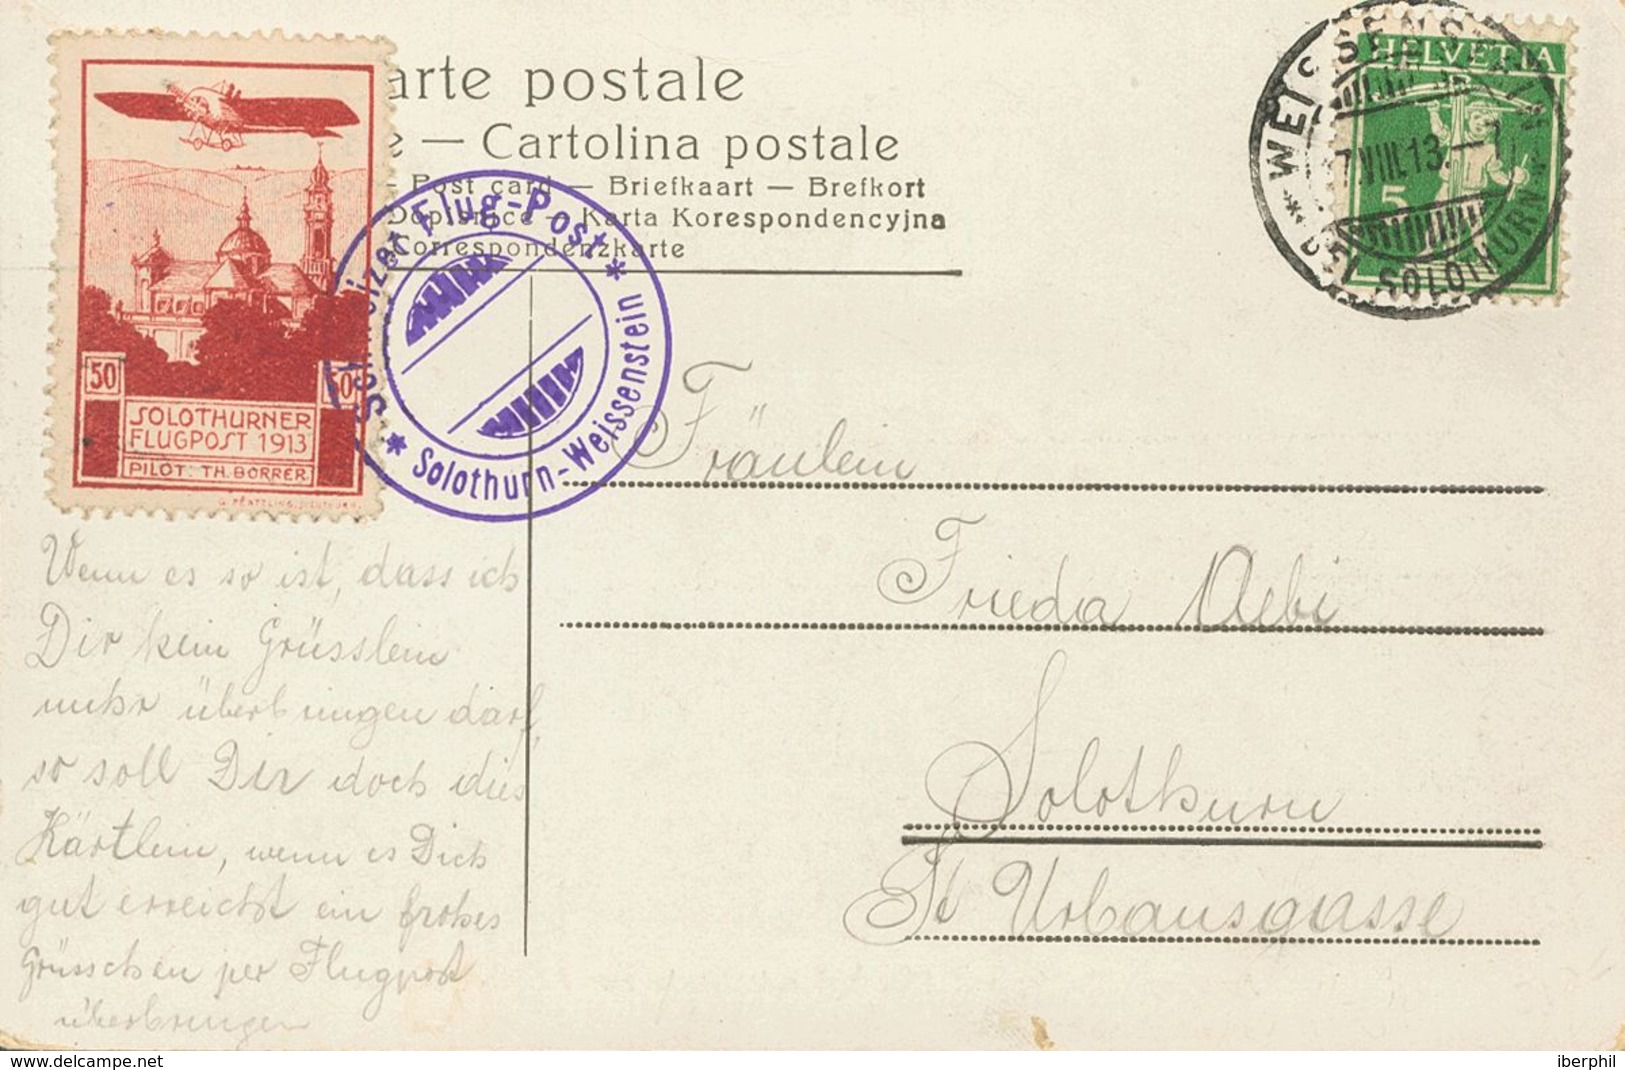 arte postale
e — Cartolina postale
Post card — Briefkaart — Brefkort
Dopisnice — Karta Korespondencyjna
Correspondenzkarte
HELVETIA
5
WEISSENSTEIN
7.VIII.13.
BEI SOLOTHURN
50
50
SOLOTHURNER
FLUGPOST 1913
PILOT: TH. BORRER
Flug-Post
* Solothurn-Weissenstein *
Fräulein
Frieda Aebi
Solothurn
St Urbansgasse
Wenn es so ist, dass ich
Dir kein Grüsslein
mehr überbringen darf,
so soll Dir doch dies
Kärtlein, wenn es Dich
gut erreicht ein frohes
Grüsschen per Flugpost
überbringen
www.delcampe.net
iberphil